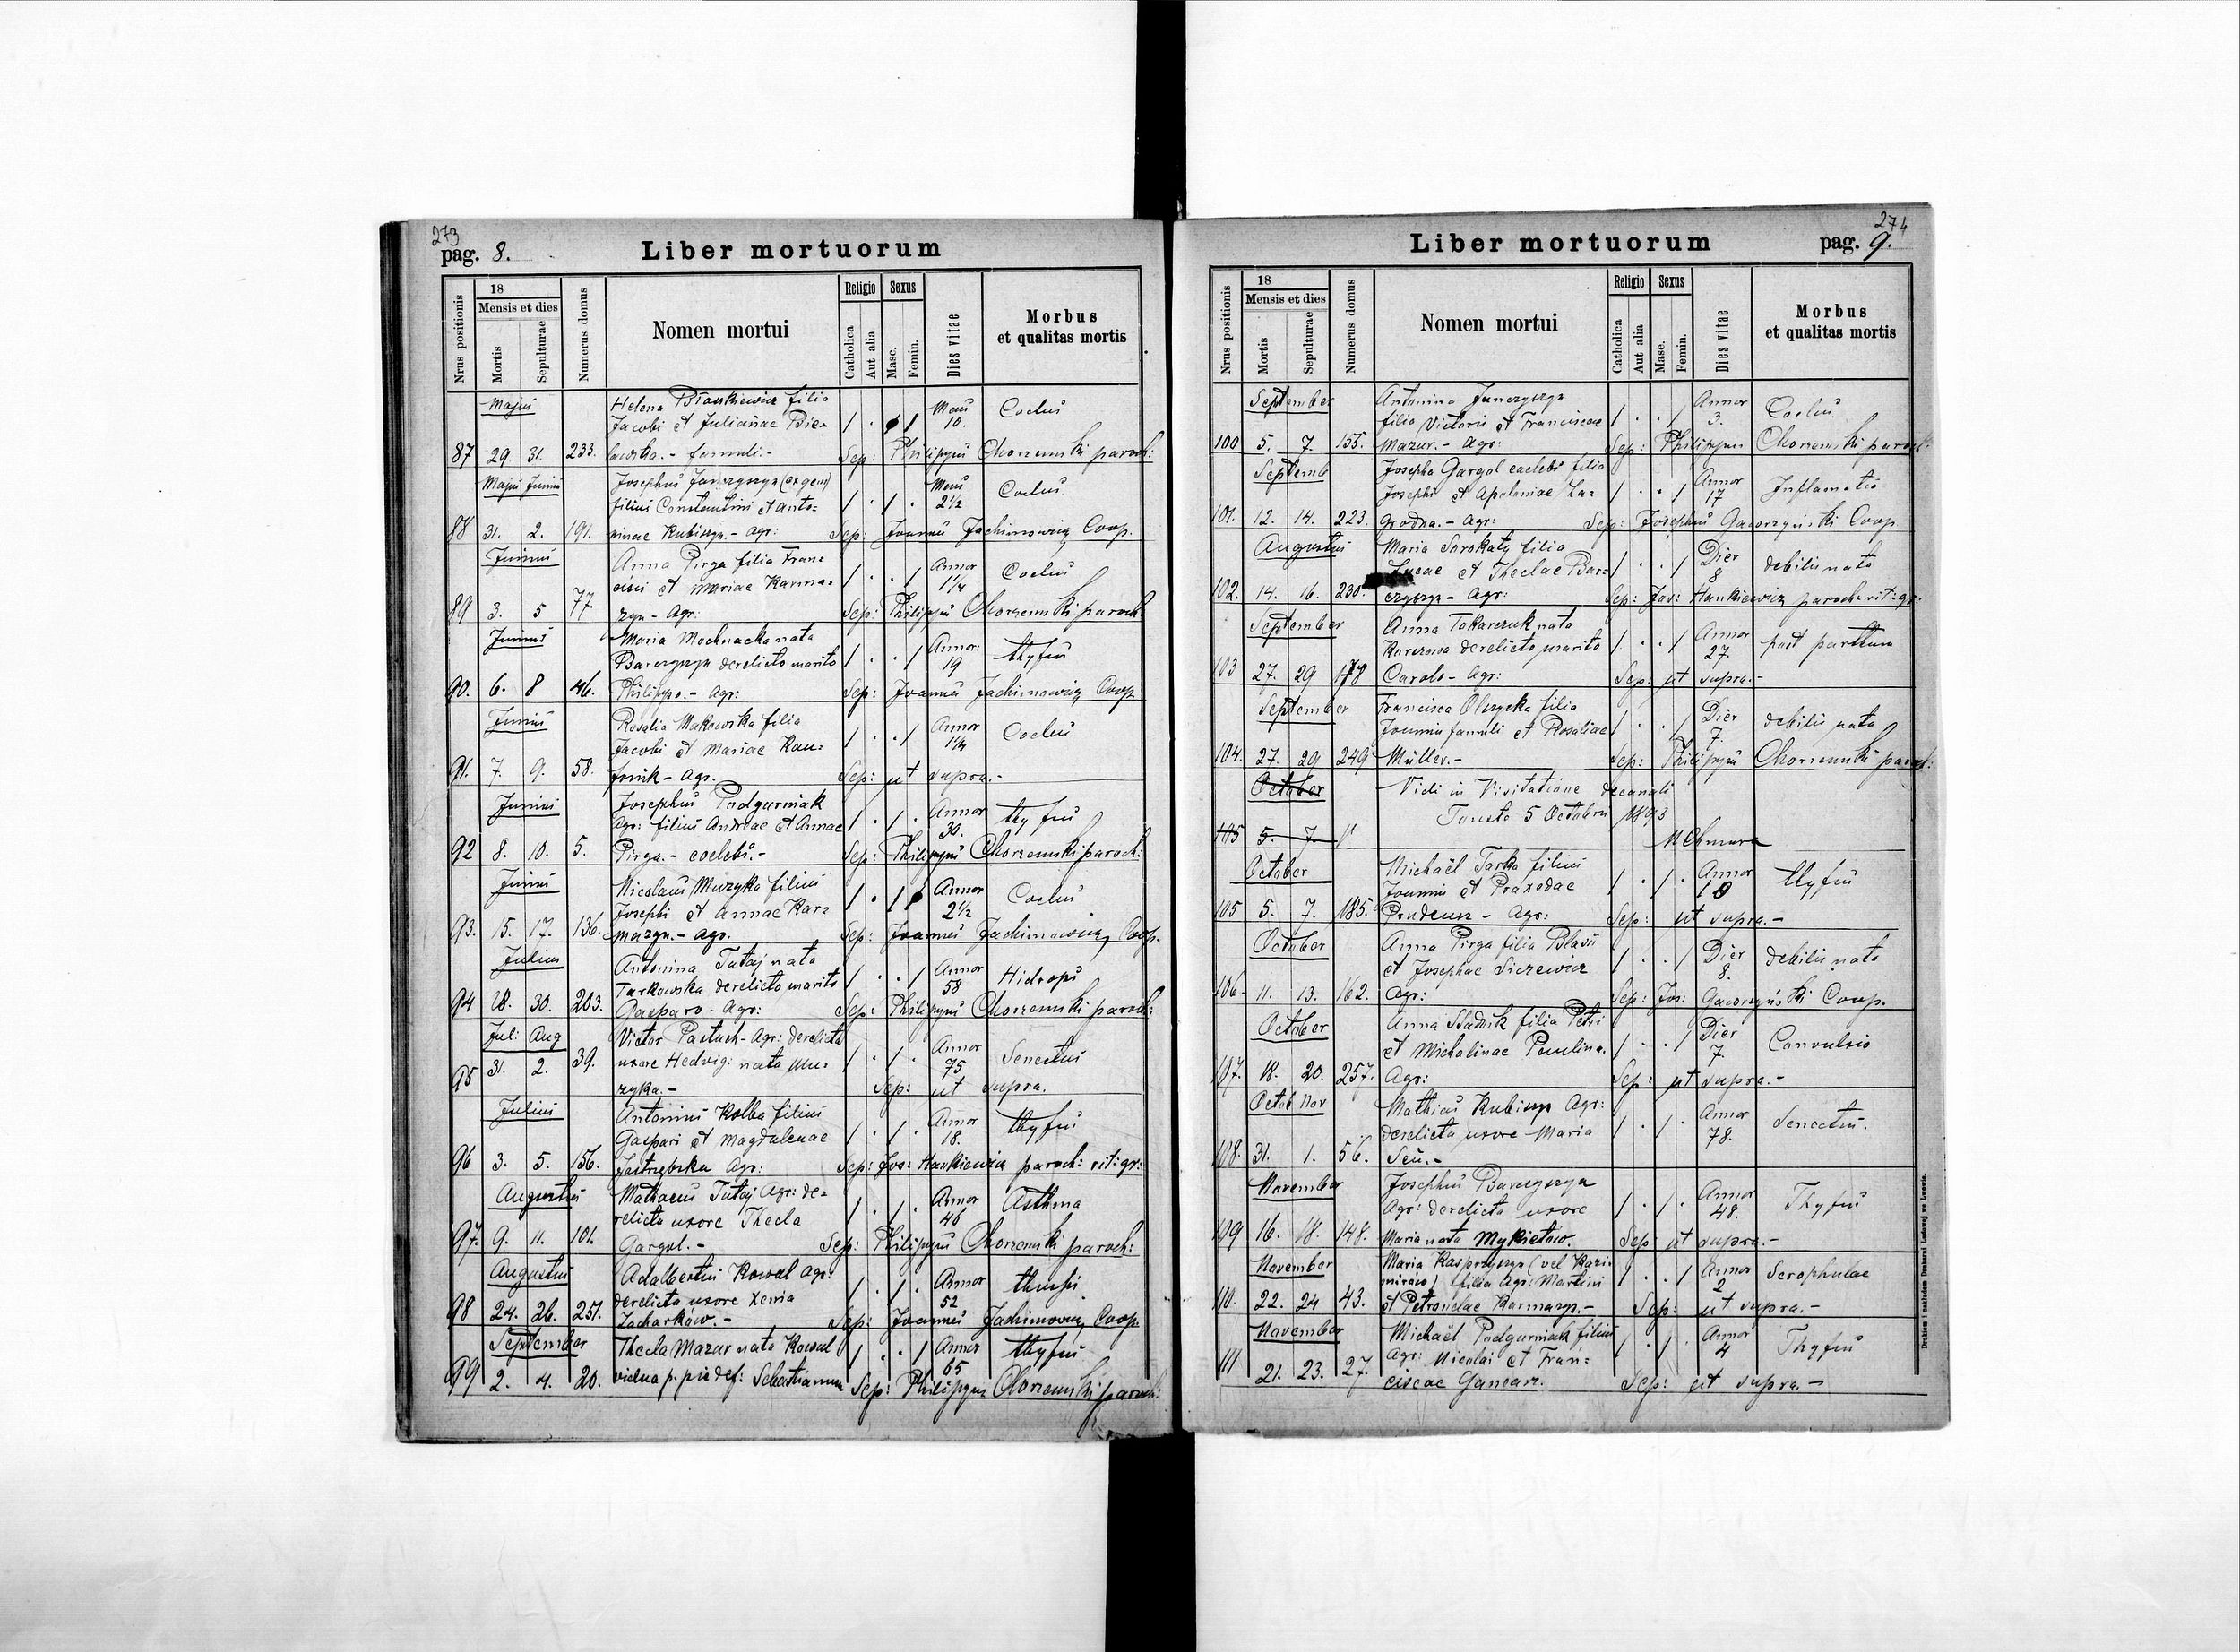 273
pag. 8.
Liber mortuorum
Nrus positionis
18
Mensis et dies
Mortis
Sepulturae
Numerus domus
Nomen mortui
Religio
Catholica
Aut alia
Sexus
Masc.
Femin.
Dies vitae
Morbus
et qualitas mortis
Majus
Helena Biankiewicz filia
Jacobi et Julianae Bie-
87 29. 31. 233. lawska. - famuli. -
Mens 10. Coclus
Sep: Philippus Chorzemski paroch:
Majus Junius
Josephus Janczyszyn (ex gem)
filius Constantini et Anto=
88 31. 2. 191. ninae Kubiszyn. - Agr:
Mens 2½ Coclus
Sep: Joannes Jachimowicz Coop.
Junius
Anna Pirga filia Fran=
cisci et Mariae Karma=
89 3. 5 77. zyn - Agr:
Annor 1¼ Coclus
Sep: Philippus Chorzemski paroch:
Junius
Maria Mochnacka nata
Barczyszyn derelicto marito
90. 6. 8 46. Philippo. - Agr:
Annor: 19 thyfus
Sep: Joannes Jachimowicz Coop.
Junius
Rosalia Makowska filia
Jacobi et Mariae Kau=
91. 7. 9. 58. Agr.
Annor 1¼ Coclus
Sep: ut supra. -
Junius
Josephus Podgurniak
Agr: filius Andreae et Annae
92 8. 10. 5. Pirga. - coelebs. -
Annor 30. thyfus
Sep: Philippus Chorzemski paroch:
Junius
Nicolaus Muzyka filius
Josephi et Annae Kar=
93. 15. 17. 136. mazyn. - Agr.
Annor 2½ Coclus
Sep: Joannes Jachimowicz Coop.
Julius
Antonina Tutaj nata
Turkowska derelicto marito
94 28. 30. 203. Gasparo - Agr:
Annor 58 Hidrops
Sep: Philippus Chorzemski paroch:
Jul: Aug
Victor Pastuch - Agr: derelicta
uxore Hedvig: nata Mu=
95 31. 2. 39. zyka. -
Annor 75 Senectus
Sep: ut supra.
Julius
Antonius Kolba filius
Gaspari et Magdalenae
96 3. 5. 156. Jastrzębska Agr:
Annor 18. thyfus
Sep: Jos: Hankiewicz paroch: rit: gr:
Augustus
Mathaeus Tutaj Agr: de=
relicta uxore Thecla
97. 9. 11. 101. Gargol. -
Annor 46 Asthma
Sep: Philippus Chorzemski paroch:
Augustus
Adalbertus Kowal Agr:
derelicta uxore Xenia
98 24. 26. 251. Zacharków. -
Annor 52
Sep: Joannes Jachimowicz Coop.
September
Thecla Mazur nata Kowal
99 2. 4. 20. vidua p. pie def: Sebastianum
Annor 65 thyfus
Sep: Philippus Chorzemski paroch:
274
Liber mortuorum
pag. 9.
Nrus positionis
18
Mensis et dies
Mortis
Sepulturae
Numerus domus
Nomen mortui
Religio
Catholica
Aut alia
Sexus
Masc.
Femin.
Dies vitae
Morbus
et qualitas mortis
September
Antonina Janczyszyn
filia Victoris et Franciscae
100 5. 7. 155. Mazur. - Agr:
Annor 3. Coclus
Sep: Philippus Chorzemski paroch:
Septemb
Josepha Gargol caelebs filia
Josephi et Apoloniae Za=
101. 12. 14. 223. grodna. - Agr:
Annor 17 Inflamatio
Sep: Josephus Gaworzyński Coop
Augustus
Maria Sarskaty filia
Lucae et Theclae Bar=
102. 14. 16. 230. czyszyn - Agr:
Dier 8 debilis nata
Sep: Jos: Hankiewicz paroch: rit: gr:
September
Anna Tokarczuk nata
Karczowa derelicto marito
103 27. 29 178 Carolo - Agr:
Annor 27. post partum
Sep: ut supra. -
September
Francisca Olszycka filia
Joannis famuli et Rosaliae
104. 27. 29 249 Müller. -
Dier 7. debilis nata
Sep: Philippus Chorzemski paroch:
October
Vidi in Visitatione decanali
Touste 5 Octobris 1893
105 5. 7.
October
Michaël Tarka filius
Joannis et Praxedae
105 5. 7. 185. Prudeus - Agr:
Annor 10 thyfus
Sep: ut supra. -
October
Anna Pirga filia Blasii
et Josephae Siczewicz
106. 11. 13. 162. Agr:
Dier 8. debilis nata
Sep: Jos: Gaworzyński Coop.
October
Anna Stadnik filia Petri
et Michalinae Paulina.
107. 18. 20. 257. Agr:
Dier 7. Convulsio
Sep: ut supra. -
Octob Nov
Mathias Kubiszyn Agr:
derelicta uxore Maria
108. 31. 1. 56. Seń. -
Annor 78. Senectus.
November
Josephus Barczyszyn
Agr: derelicta uxore
109 16. 18. 148. Maria nata Mykietów.
Annor 48. Thyfus
Sep: ut supra. -
November
Maria Kasprzyszyn (vel Kazi=
mirów) filia Agr: Martini
110. 22. 24 43. et Petronelae Karmazyn. -
Annor 2 Scrophulae
Sep: ut supra. -
November
Michaël Podgurniak filius
Agr: Nicolai et Fran=
111 21. 23. 27. ciscae Gancarz.
Annor 4 Thyfus
Sep: ut supra. -
Drukiem i nakładem Drukarni Ludowej we Lwowie.